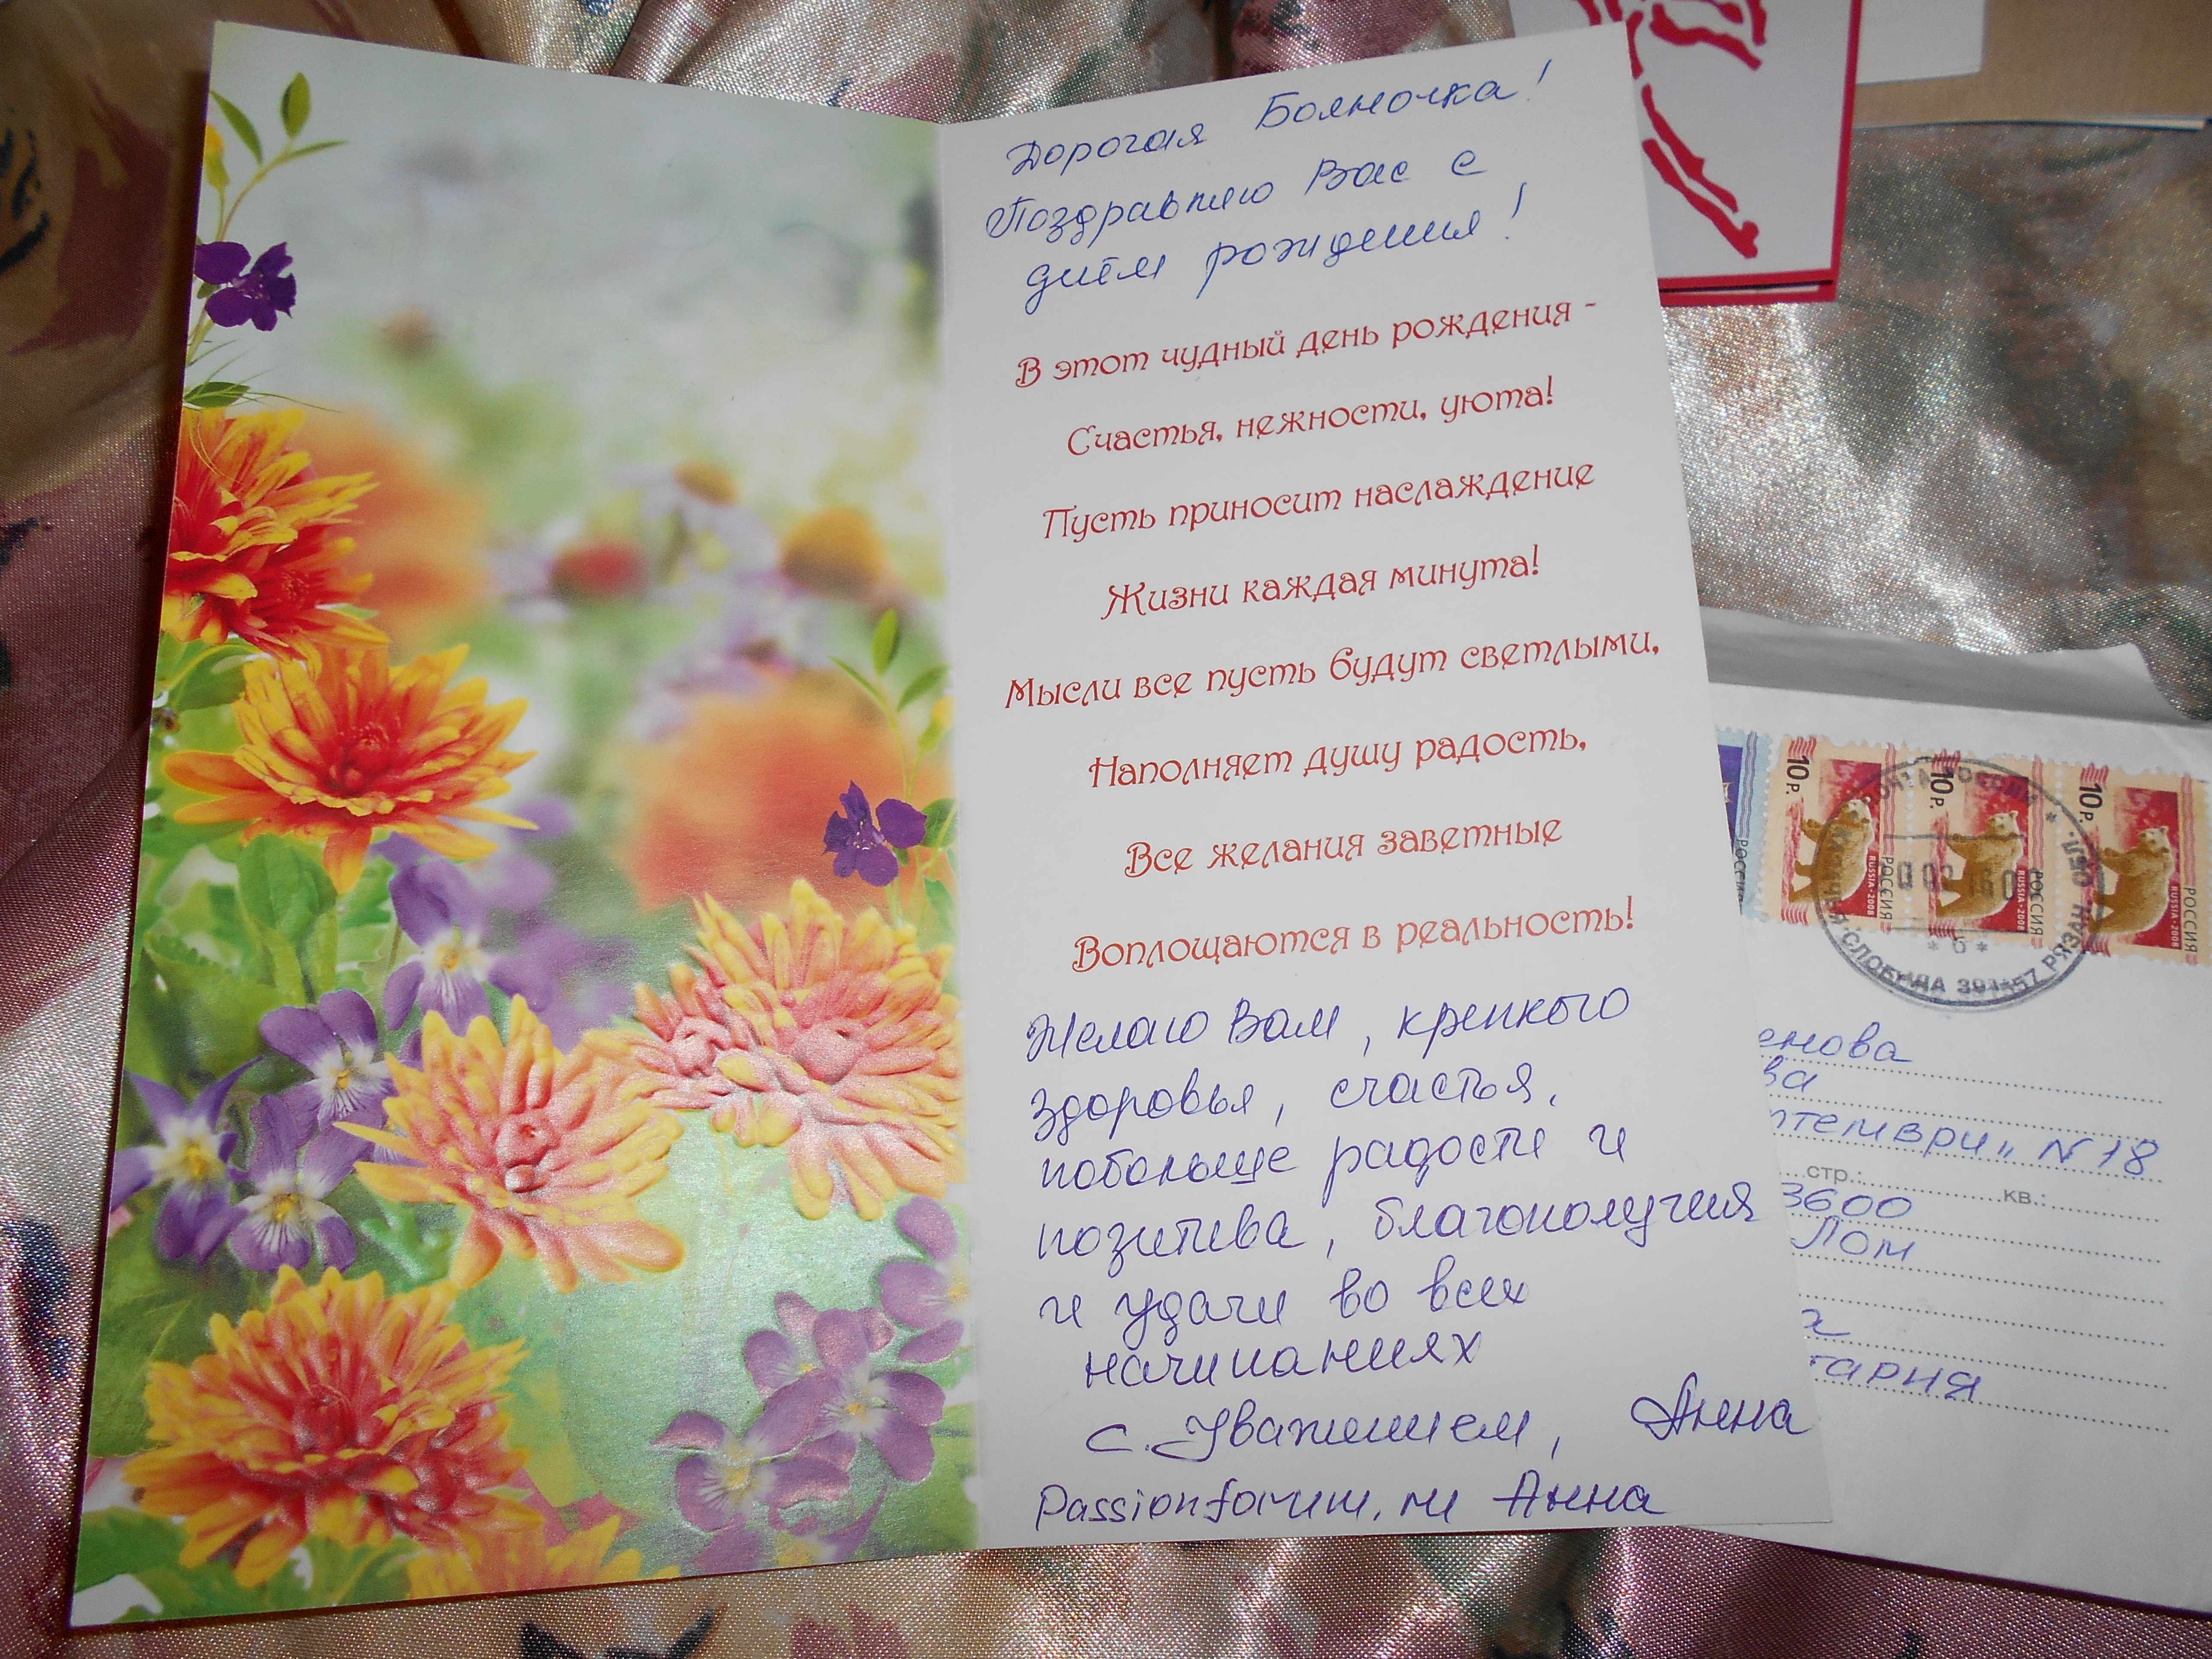 Дорогая Бояночка!
Поздравляю Вас с
днём рождения!
В этот чудный день рождения -
Счастья, нежности, уюта!
Пусть приносит наслаждение
Жизни каждая минута!
Мысли все пусть будут светлыми,
Наполняет душу радость,
Все желания заветные
Воплощаются в реальность!
Желаю Вам, крепкого
здоровья, счастья,
побольше радости и
позитива, благополучия
и удачи во всех
начинаниях
с Уважением, Анна
Passionforum.ru Анна
10 Р. РОССИЯ RUSSIA・2008
10 Р. РОССИЯ RUSSIA・2008
10 Р. РОССИЯ RUSSIA・2008
РОССИЯ
СЛОБОДА
енова
ва
птември" N 18
стр.: кв.:
3600
Лом
а
гария